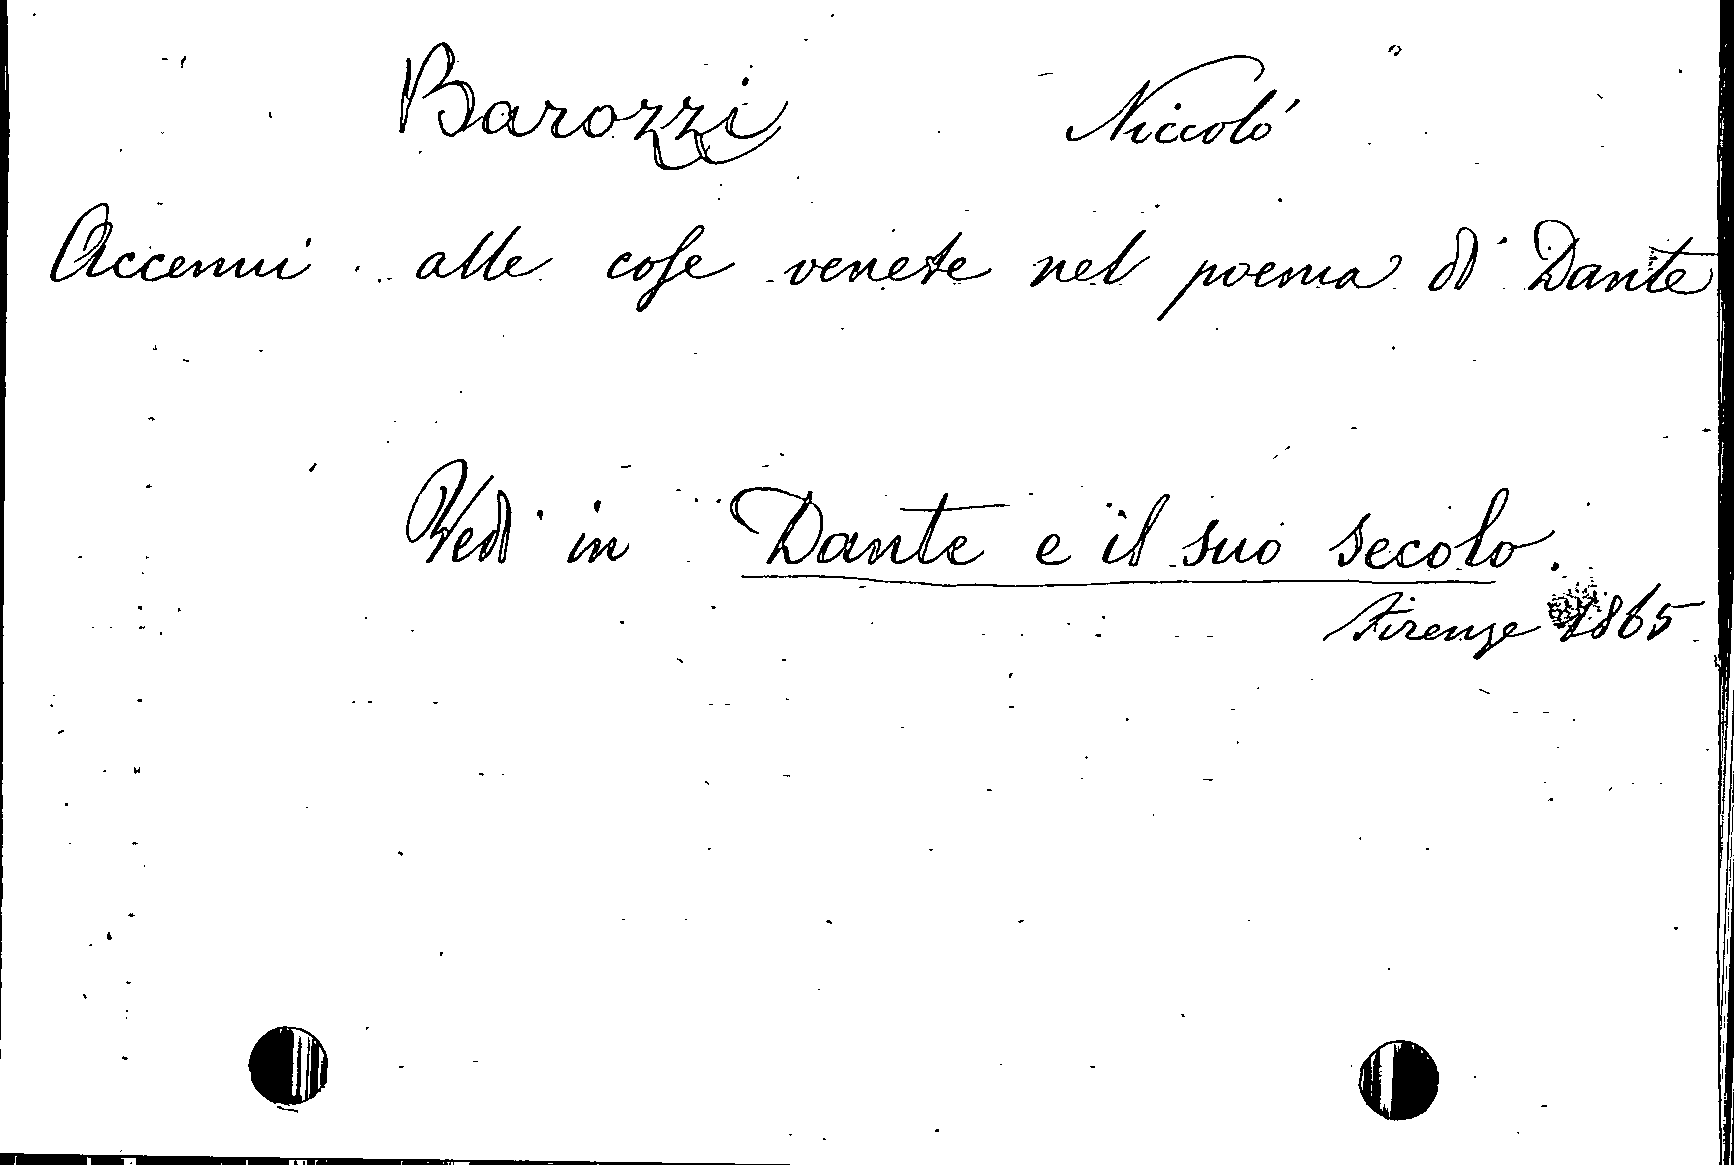 Barozzi Niccoló
Accenni alle cose venete nel poema di Dante
Vedi in Dante e il suo secolo.
Firenze 1865